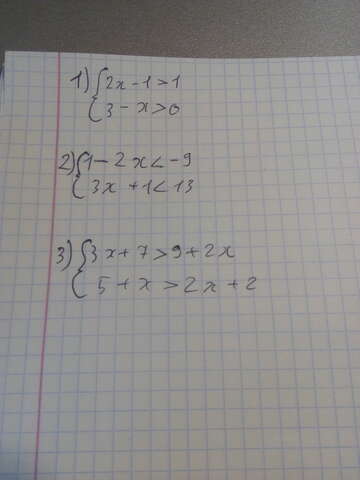 1) { 2x - 1 > 1
3 - x > 0
2) { 1 - 2x < -9
3x + 1 < 13
3) { 3x + 7 > 9 + 2x
5 + x > 2x + 2